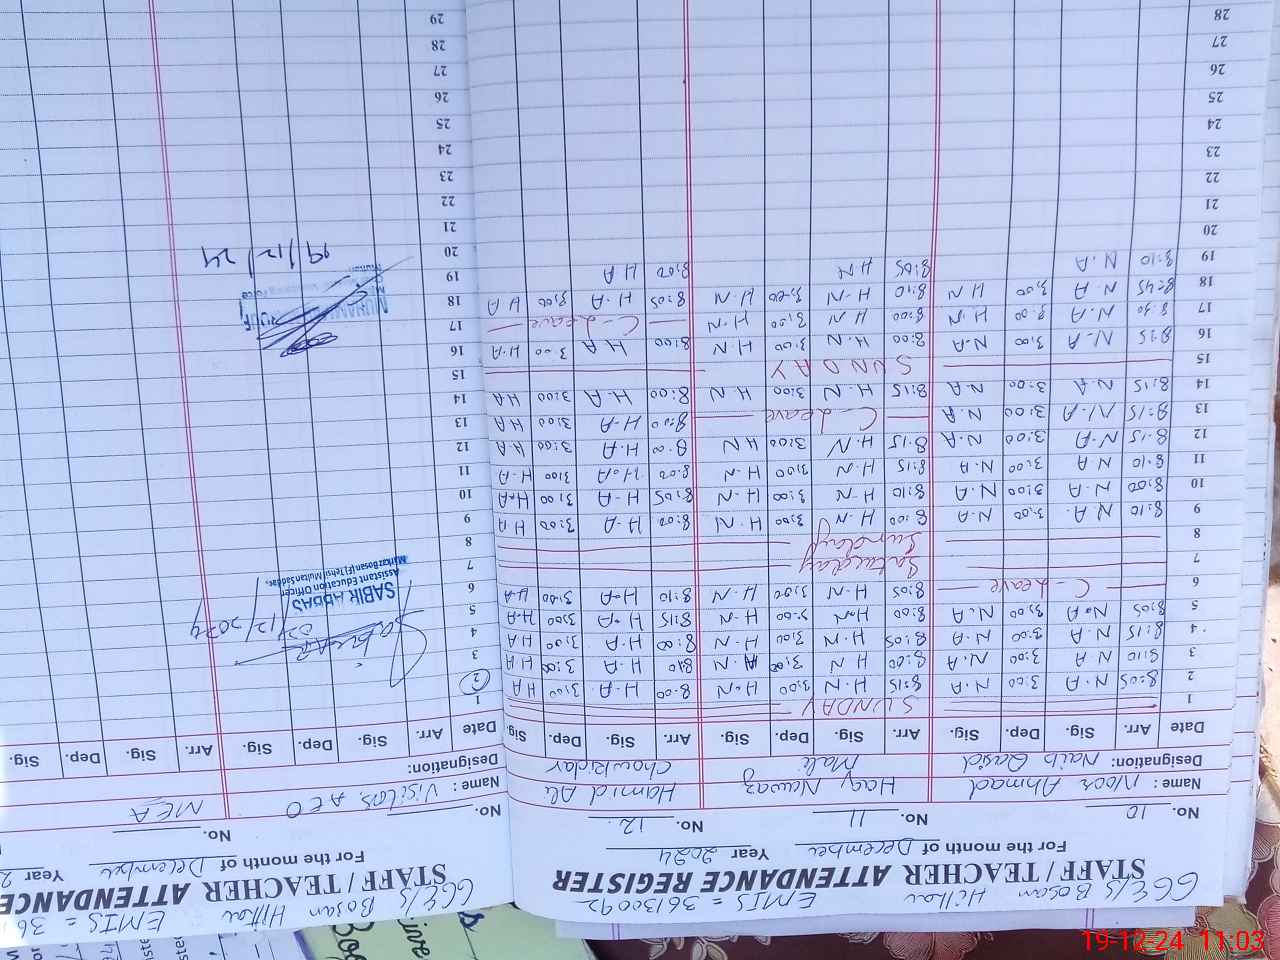 GGE/S Bosan Hithar EMIS = 36130092
STAFF / TEACHER ATTENDANCE REGISTER
For the month of December Year 2024
No. 10 No. 11 No. 12
Name : Noor Ahmad Haq Nawaz Hamid Ali
Designation: Naib Qasid Mali Chowkidar
Date Arr. Sig. Dep. Sig. Arr. Sig. Dep. Sig. Arr. Sig. Dep. Sig.
1 SUNDAY
2 8:05 N.A 3:00 N.A 8:15 H.N 3:00 H.N 8:00 H.A 3:00 HA
3 8:10 N A 3:00 N.A 8:00 H N 3:00 H.N 8:10 H.A 3:00 HA
4 8:15 N.A 3:00 N.A 8:05 H.N 3:00 H-N 8:00 H.A 3:00 HA
5 8:05 N.A 3:00 N.A 8:00 H.N 3:00 H-N 8:15 H.A 3:00 H.A
6 C-Leave 8:05 H-N 3:00 H-N 8:10 H.A 3:00 HA
7 Saturday
8 Sunday
9 8:10 N A. 3:00 N.A 8:00 H.N 3:00 H.N 8:00 H-A 3:00 HA
10 8:00 N.A 3:00 N.A 8:10 H N 3:00 H-N 8:05 H-A 3:00 H.A
11 8:10 N A 3:00 N.A 8:15 H N 3:00 H-N 8:00 H.A 3:00 H-A
12 8:15 N-A 3:00 N.A 8:15 H.N 3:00 H N 8:00 H.A 3:00 H A
13 8:15 N.A 3:00 N.A C-Leave 8:00 H-A 3:00 HA
14 8:15 N.A 3:00 N.A 8:15 H.N 3:00 H.N 8:00 H.A 3:00 HA
15 SUNDAY
16 8:15 N-A 3:00 N.A 8:00 H.N 3:00 H.N 8:00 H A 3:00 H.A
17 8:30 N.A 3:00 H.N 8:00 H N 3:00 H-N C-Leave
18 8:45 N.A 3:00 H N 8:10 H-N 3:00 H.N 8:05 H-A 3:00 H A
19 8:10 N.A 8:05 H N 8:00 H A
20
21
22
23
24
25
26
27
28
GGE/S Bosan Hithar EMIS = 36
STAFF / TEACHER ATTENDANCE
For the month of December Year 2
No. No.
Name : Visitors AEO MEA
Designation:
Date Arr. Sig. Dep. Sig. Arr. Sig. Dep. Sig.
1
2
3
4
5
6
7
8
9
10
11
12
13
14
15
16
17
18
19
20
21
22
23
24
25
26
27
28
29
12/2024
SABIR ABBAS
Assistant Education Officer
Markaz Bosan (F) Tehsil Multan Saddar
19/12/24
19-12-24 11:03